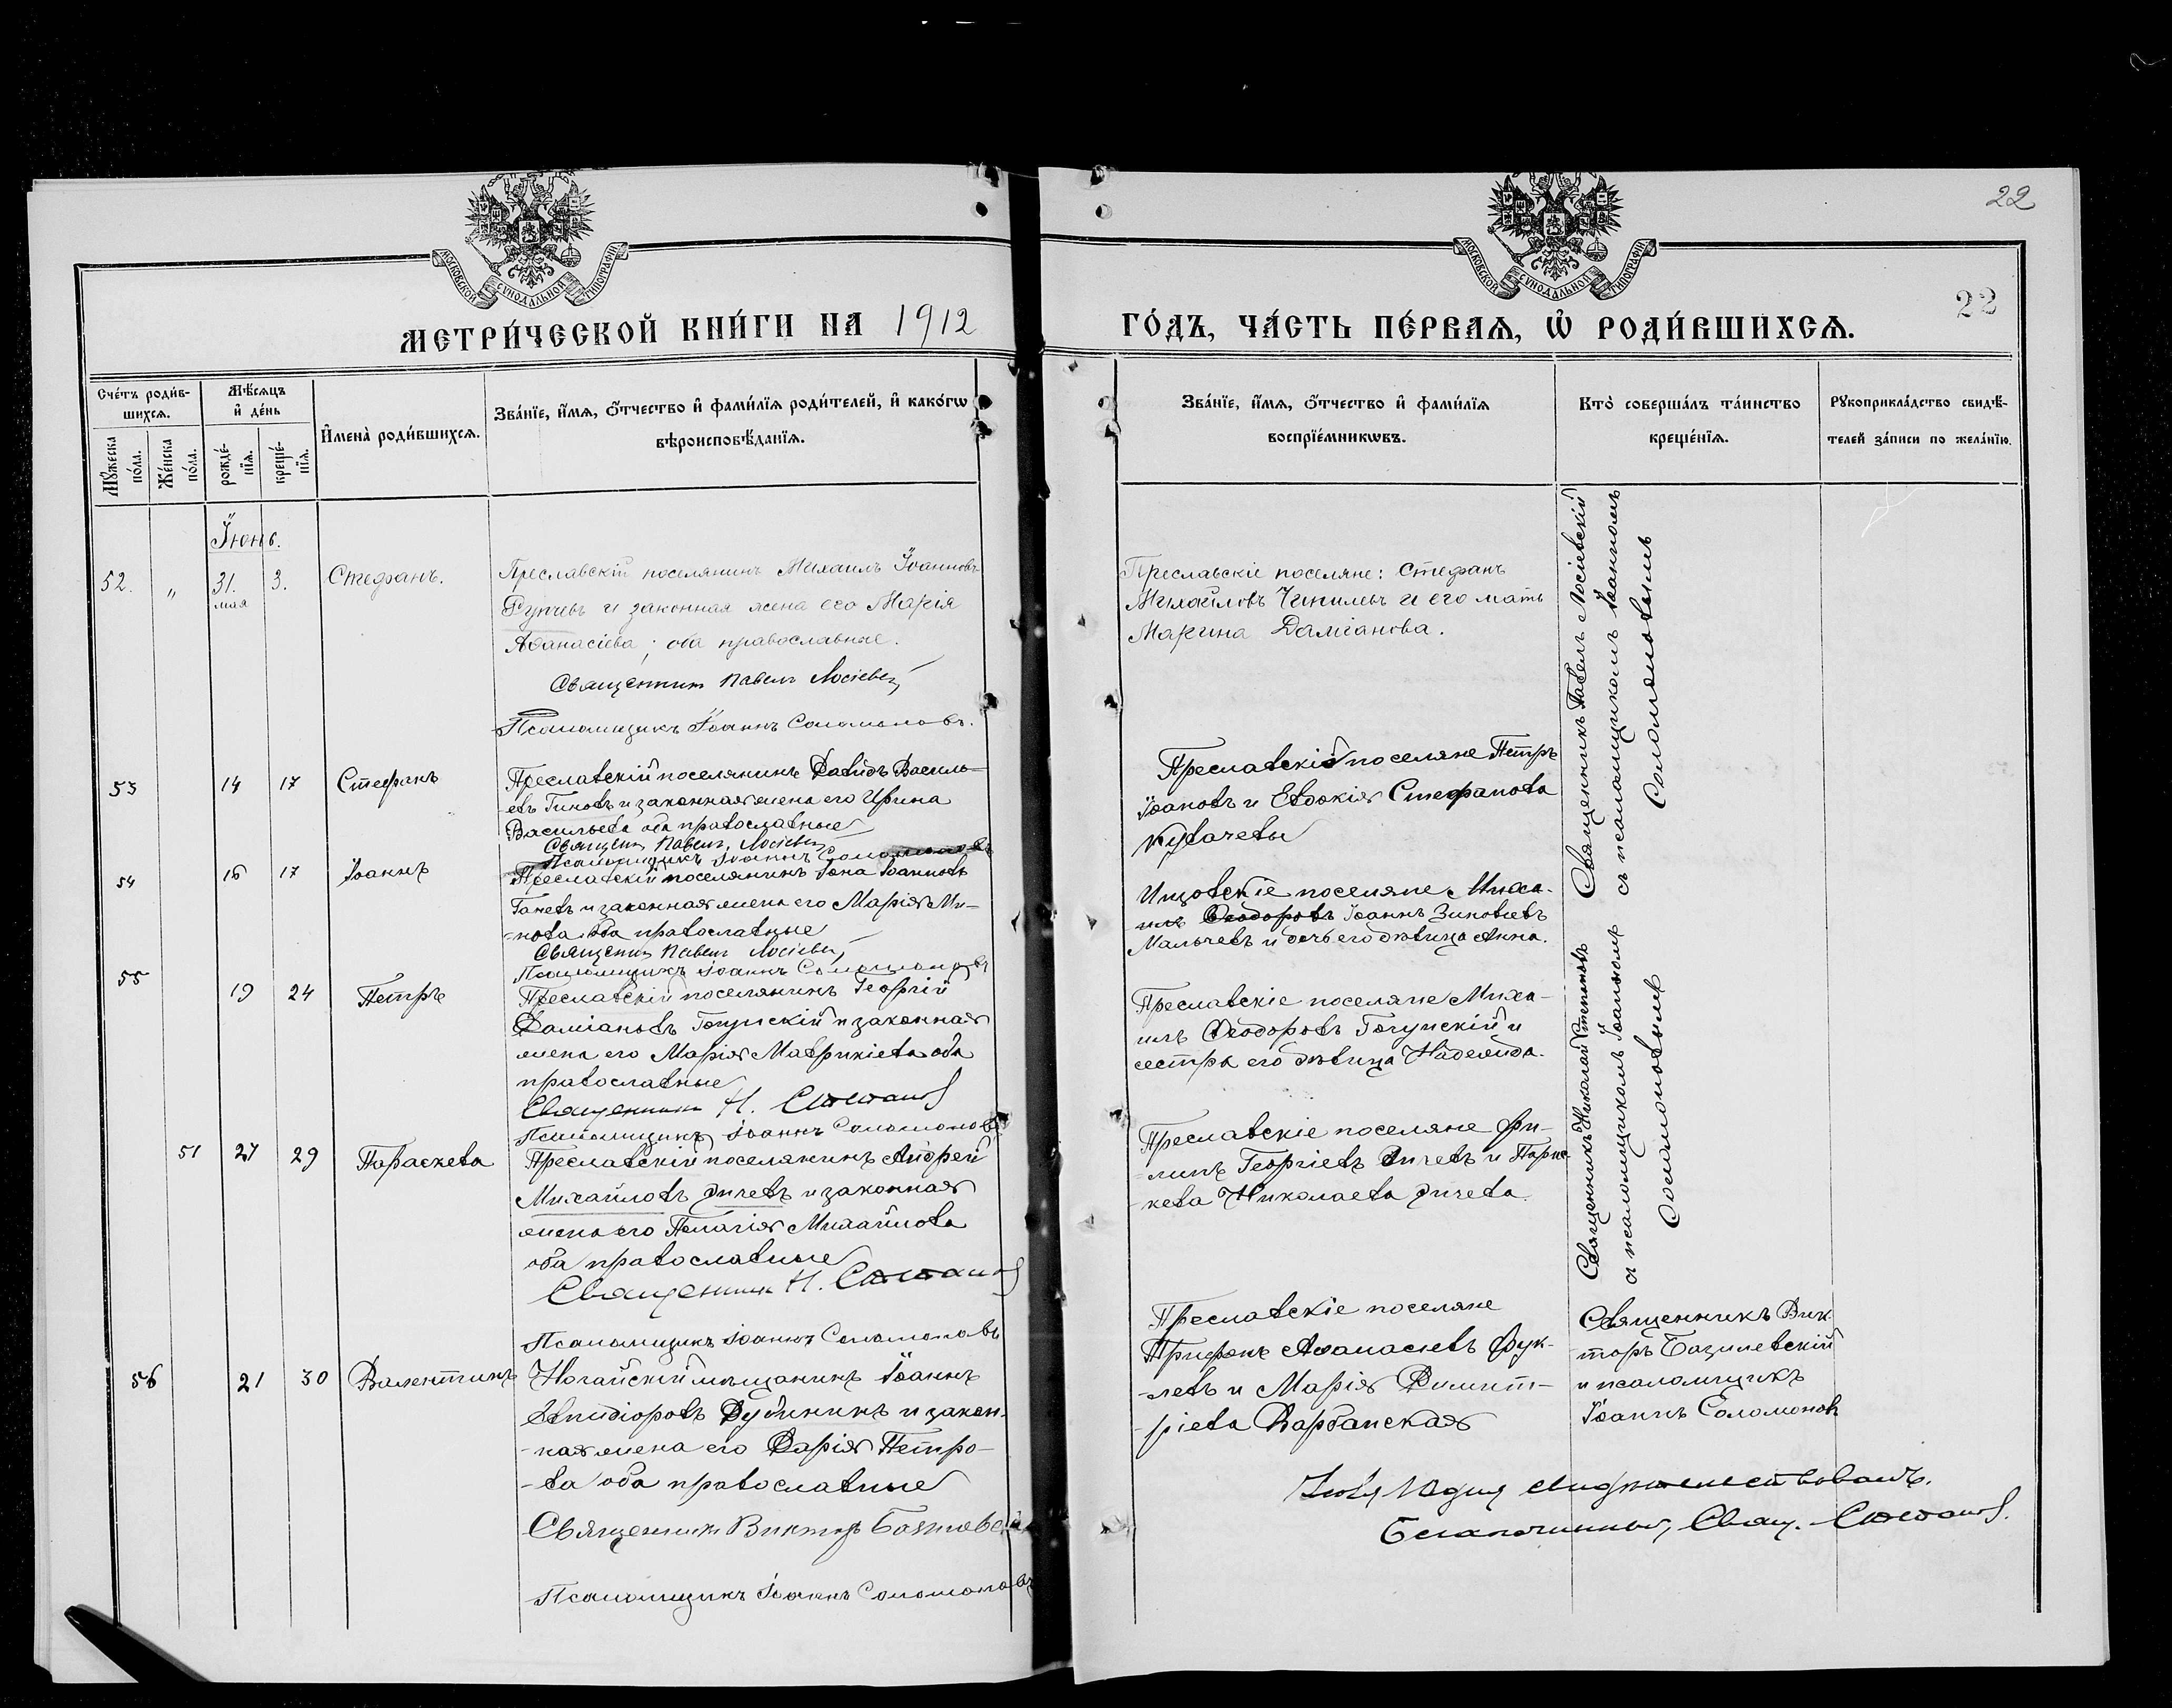 22
МОСКОВСКОЙ СѴНОДАЛЬНОЙ ТИПОГРАФІИ
МОСКОВСКОЙ СѴНОДАЛЬНОЙ ТИПОГРАФІИ
МЕТРИ́ЧЕСКОЙ КНИ́ГИ НА 1912
ГО́ДЪ, ЧА́СТЬ ПЕ́РВАѦ, Ѡ҆ РОДИ́ВШИХСѦ.
22
Сче́тъ роди́в-
шихсѧ.
Мѣ́сѧцъ
и҆ де́нь
И҆мена̀ роди́вшихсѧ.
Зва́нїе, и҆́мѧ, ѻ҆́тчество и҆ фами́лїѧ роди́телей, и҆ како́гѡ
вѣроисповѣ́данїѧ.
Мꙋ́жеска
по́ла.
Же́нска
по́ла.
рожде́-
нїѧ.
креще́-
нїѧ.
Зва́нїе, и҆́мѧ, ѻ҆́тчество и҆ фами́лїѧ
воспрїе́мникѡвъ.
Кто̀ соверша́лъ та́инство
креще́нїѧ.
Рꙋкоприкла́дство свидѣ́-
телей за́писи по жела́нїю.
Іюнь.
52. " 31. 3. Стефанъ.
мая
Преславскій поселянинъ Михаилъ Іоанновъ
Рупчевъ и законная жена его Марія
Аѳанасіева; оба православные.
Священникъ Павелъ Лосіевскій
Псаломщикъ Іоаннъ Соломоновъ.
Преславскіе поселяне: Стефанъ
Михайловъ Чипилевъ и его мать
Марина Даміанова.
Священникъ Павелъ Лосіевскій
съ псаломщикомъ Іоанномъ
Соломоновымъ
53 14 17 Стефанъ
Преславскій поселянинъ Давидъ Василь-
евъ Гиновъ и законная жена его Ирина
Васильева оба православные
Священ. Павелъ Лосіевскій
Псаломщикъ Іоаннъ Соломоновъ
Преславскіе поселяне Петръ
Іоановъ и Евдокія Стефанова
Кувачевы
54 16 17 Іоаннъ
Преславскій поселянинъ Іона Іоанновъ
Ганевъ и законная жена его Марія Ми-
нова оба православные
Священ. Павелъ Лосіевскій
Псаломщикъ Іоаннъ Соломоновъ
поселяне Миха-
илъ Ѳеодоровъ Іоаннъ Зиновіевъ
Мальчевъ и дочь его дѣвица Анна.
55 19 24 Петръ
Преславскій поселянинъ Георгій
Даміановъ Гогунскій и законная
жена его Марія Маврикіева оба
православные
Священникъ Н. Степановъ
Псаломщикъ Іоаннъ Соломоновъ
Преславскіе поселяне Миха-
илъ Ѳеодоровъ Гогунскій и
сестра его дѣвица Надежда.
Священникъ Николай Степановъ
съ псаломщикомъ Іоанномъ
Соломоновымъ
51 27 29 Параскева
Преславскій поселянинъ Андрей
Михайловъ Дичевъ и законная
жена его Пелагія Михайлова
оба православные
Священникъ Н. Степановъ
Псаломщикъ Іоаннъ Соломоновъ
Преславскіе поселяне Фи-
липъ Георгіевъ Дичевъ и Парас-
кева Николаева Дичева
56 21 30 Валентинъ
Ногайскій мѣщанинъ Іоаннъ
Елпидіоровъ Дубининъ и закон-
ная жена его Дарія Петро-
ва оба православные
Священникъ Викторъ Базилевскій
Псаломщикъ Іоаннъ Соломоновъ
Преславскіе поселяне
Трифонъ Аѳанасіевъ Фук-
левъ и Марія Димит-
ріева Варбанская
Священникъ Вик-
торъ Базилевскій
и псаломщикъ
Іоаннъ Соломоновъ
свидѣтельствовалъ.
Благочинный, Свящ. Степановъ.